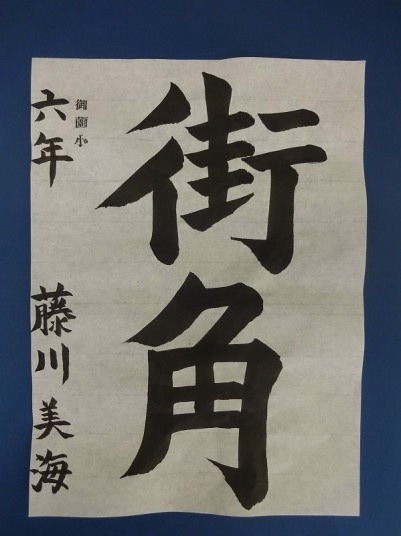 街角
御薗小
六年 藤川美海